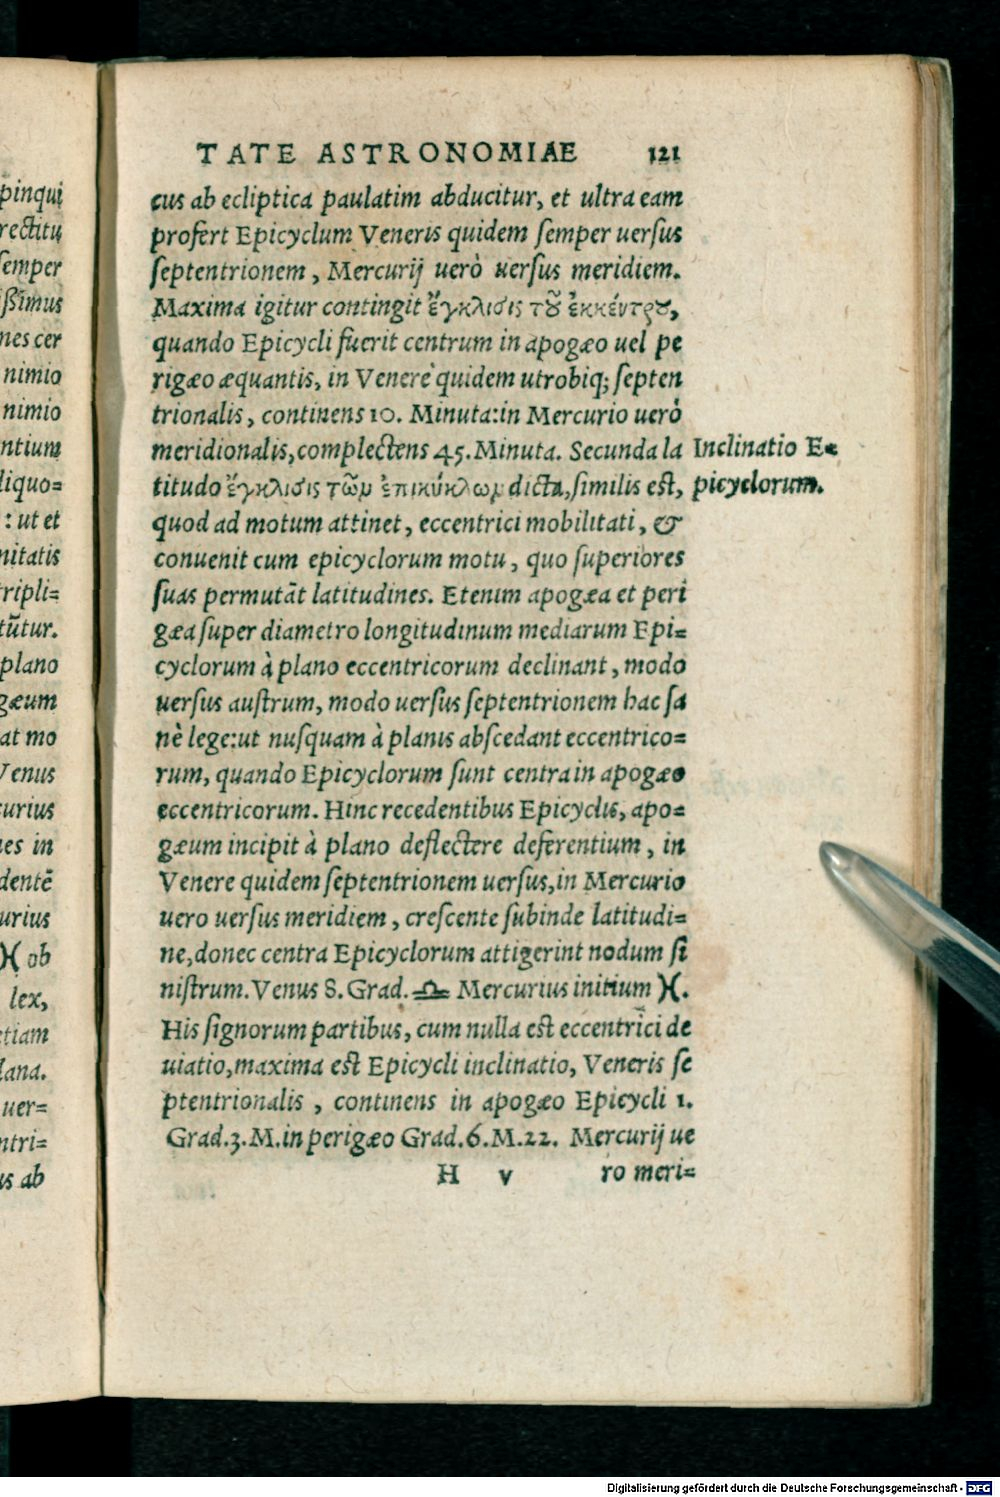 pinqui
rectitu
semper
ißimus
nes cer
nimio
nimio
ntium
liquo=
: ut et
nitatis
tripli=
tũtur.
plano
gæum
at mo
Venus
curius
es in
dentē
urius
♓ ob
lex,
etiam
lana.
uer=
ntri=
us ab
TATE ASTRONOMIAE 121
cus ab ecliptica paulatim abducitur, et ultra eam
profert Epicyclum Veneris quidem semper uersus
septentrionem, Mercurij uerò uersus meridiem.
Maxima igitur contingit ἔγκλισις τοῦ ἐκκέντρου,
quando Epicycli fuerit centrum in apogæo uel pe
rigæo æquantis, in Venere quidem utrobiq; septen
trionalis, continens 10. Minuta: in Mercurio uerò
meridionalis, complectens 45. Minuta. Secunda la
titudo ἔγκλισις τῶν ἐπικύκλων dicta, similis est,
quod ad motum attinet, eccentrici mobilitati, &
conuenit cum epicyclorum motu, quo superiores
suas permutāt latitudines. Etenim apogæa et peri
gæa super diametro longitudinum mediarum Epi=
cyclorum à plano eccentricorum declinant, modo
uersus austrum, modo uersus septentrionem hac sa
nè lege: ut nusquam à planis abscedant eccentrico=
rum, quando Epicyclorum sunt centra in apogæo
eccentricorum. Hinc recedentibus Epicyclis, apo=
gæum incipit à plano deflectere deferentium, in
Venere quidem septentrionem uersus, in Mercurio
uero uersus meridiem, crescente subinde latitudi=
ne, donec centra Epicyclorum attigerint nodum si
nistrum. Venus 8. Grad. ♎ Mercurius initium ♓.
His signorum partibus, cum nulla est eccentrici de
uiatio, maxima est Epicycli inclinatio, Veneris se
ptentrionalis, continens in apogæo Epicycli 1.
Grad. 3. M. in perigæo Grad. 6. M. 22. Mercurij ue
H v ro meri=
Inclinatio E=
picyclorum.
Digitalisierung gefördert durch die Deutsche Forschungsgemeinschaft - DFG